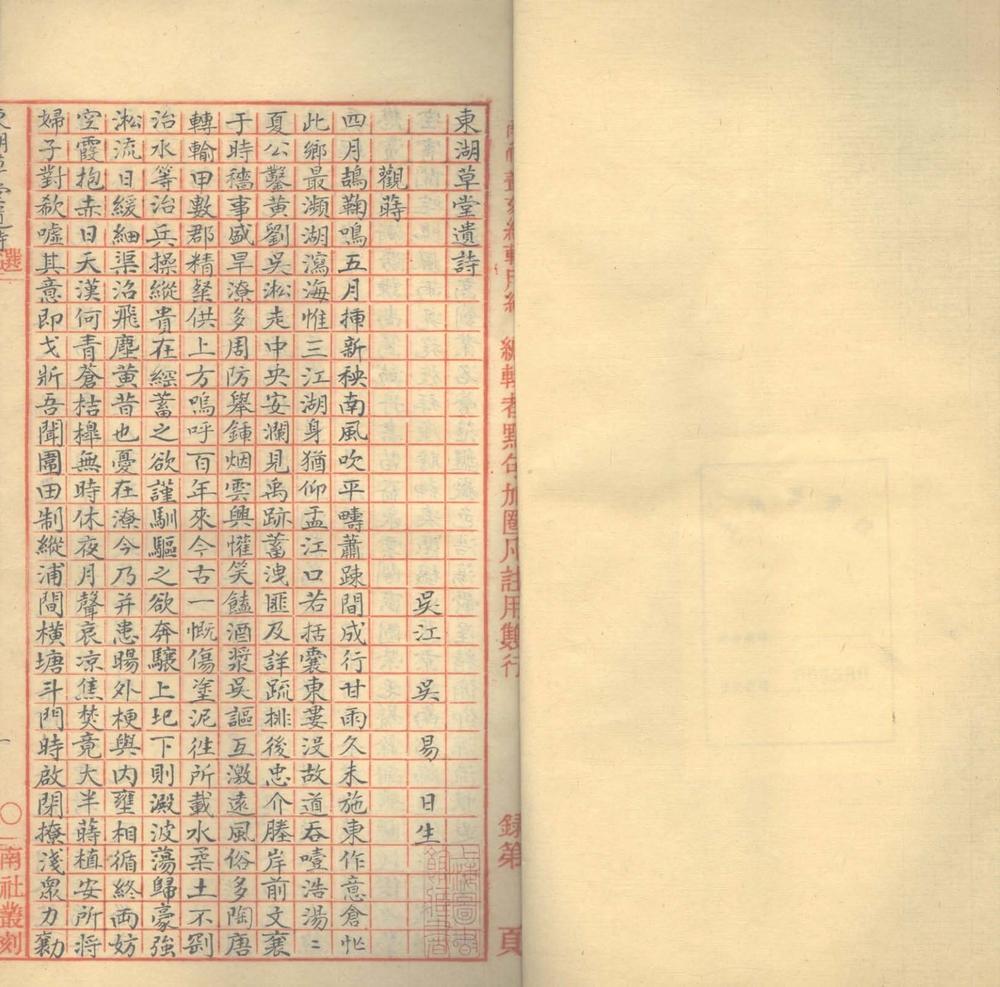 編輯者點句加圈凡註用雙行 錄第 頁
東湖草堂遺詩
吳江 吳易日生
觀蒔
四月鴣鞠鳴五月揀新秧南風吹平疇蕭踈間成行甘雨久未施東作意倉忙
此鄉最瀕湖瀉海惟三江湖身猶仰盂江口若括囊東婁沒故道吞噎浩湯二
夏公鑿黃劉吳淞走中央安瀾見禹跡蓄洩匪及詳疏排後忠介塍岸前文襄
于時穡事盛旱潦多周防舉鍾烟雲興懽笑饁酒漿吳謳互激遠風俗多陶唐
轉輸甲數郡精粲供上方嗚呼百年來今古一慨傷塗泥徃所載水柔土不剛
治水等治兵操縱貴在經蓄之欲謹馴驅之欲奔驤上圯下則澱波蕩歸豪強
淞流日緩細渠沿飛塵黃昔也憂在潦今乃并患暘外梗與內壅相循終兩妨
空霞抱赤日天漢何青蒼桔槹無時休夜月聲哀凉焦焚竟大半蒔植安所將
婦子對欷噓其意即戈斨吾聞圍田制縱浦間橫塘斗門時啟閉撩淺眾力勷
東湖草堂遺詩 選 一 〇 南社叢刻